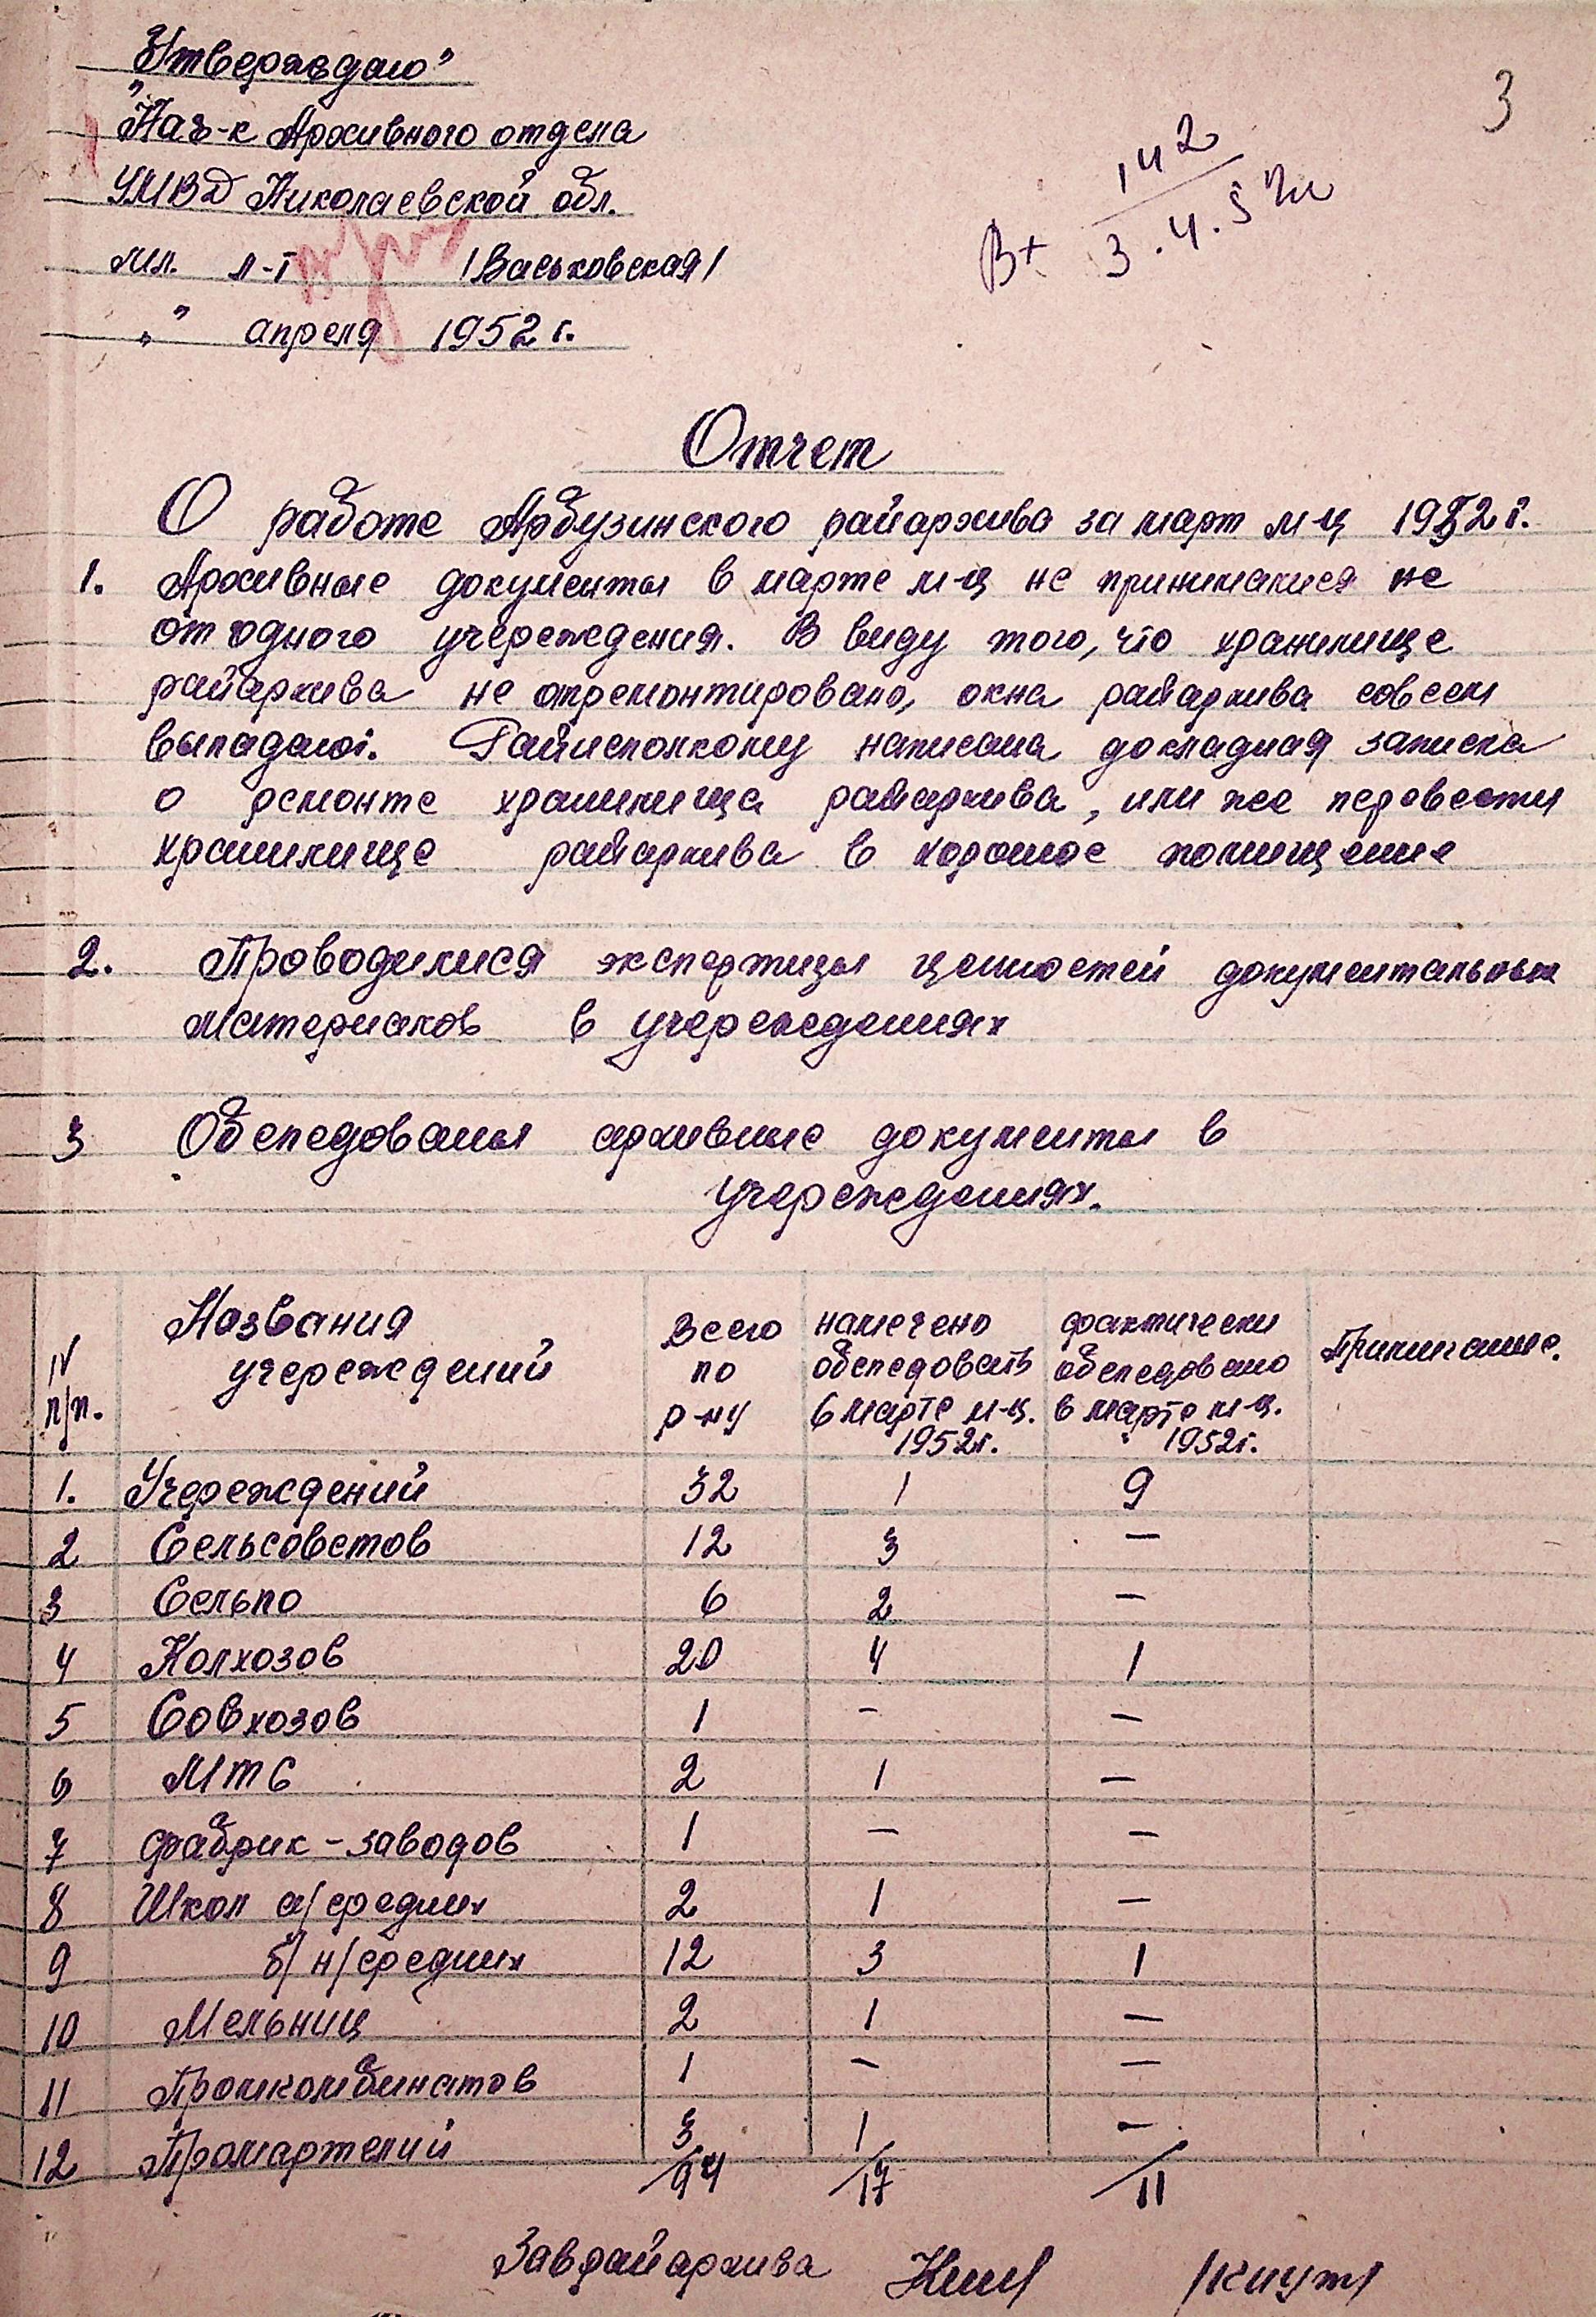 "Утверждаю"
Нач-к Архивного отдела
УМВД Николаевской обл.
мл. л-т /Васьковская/
" " апреля 1952 г.
3
142
Вх 3.4.52
Отчет
О работе Арбузинского райархива за март м-ц 1952 г.
1. Архивные документы в марте м-ц не принимались не
от одного учереждения. В виду того, что хранилище
райархива не отремонтировано, окна райархива совсем
выпадают. Райисполкому написана докладная записка
о ремонте хранилища райархива, или же перевести
хранилище райархива в хорошое помищение
2. Проводились экспертизы ценностей документальных
материалов в учереждениях
3 Обследованы архивные документы в
учереждениях.
N п/п. Названия учереждений Всего по р-ну намечено обследовать в марте м-ц. 1952г. фактически обследовано в марте м-ц. 1952г. Примичание.
1. Учереждений 32 1 9
2 Сельсоветов 12 3 —
3 Сельпо 6 2 —
4 Колхозов 20 4 1
5 Совхозов 1 - —
6 МТС 2 1 —
7 фабрик-заводов 1 — —
8 Школ а/средних 2 1 —
9 б/н/средних 12 3 1
10 Мельниц 2 1 —
11 Промкомбинатов 1 — —
12 Промартелий 3 1 —
/94 /17 /11
Завдайархива /Кнут/